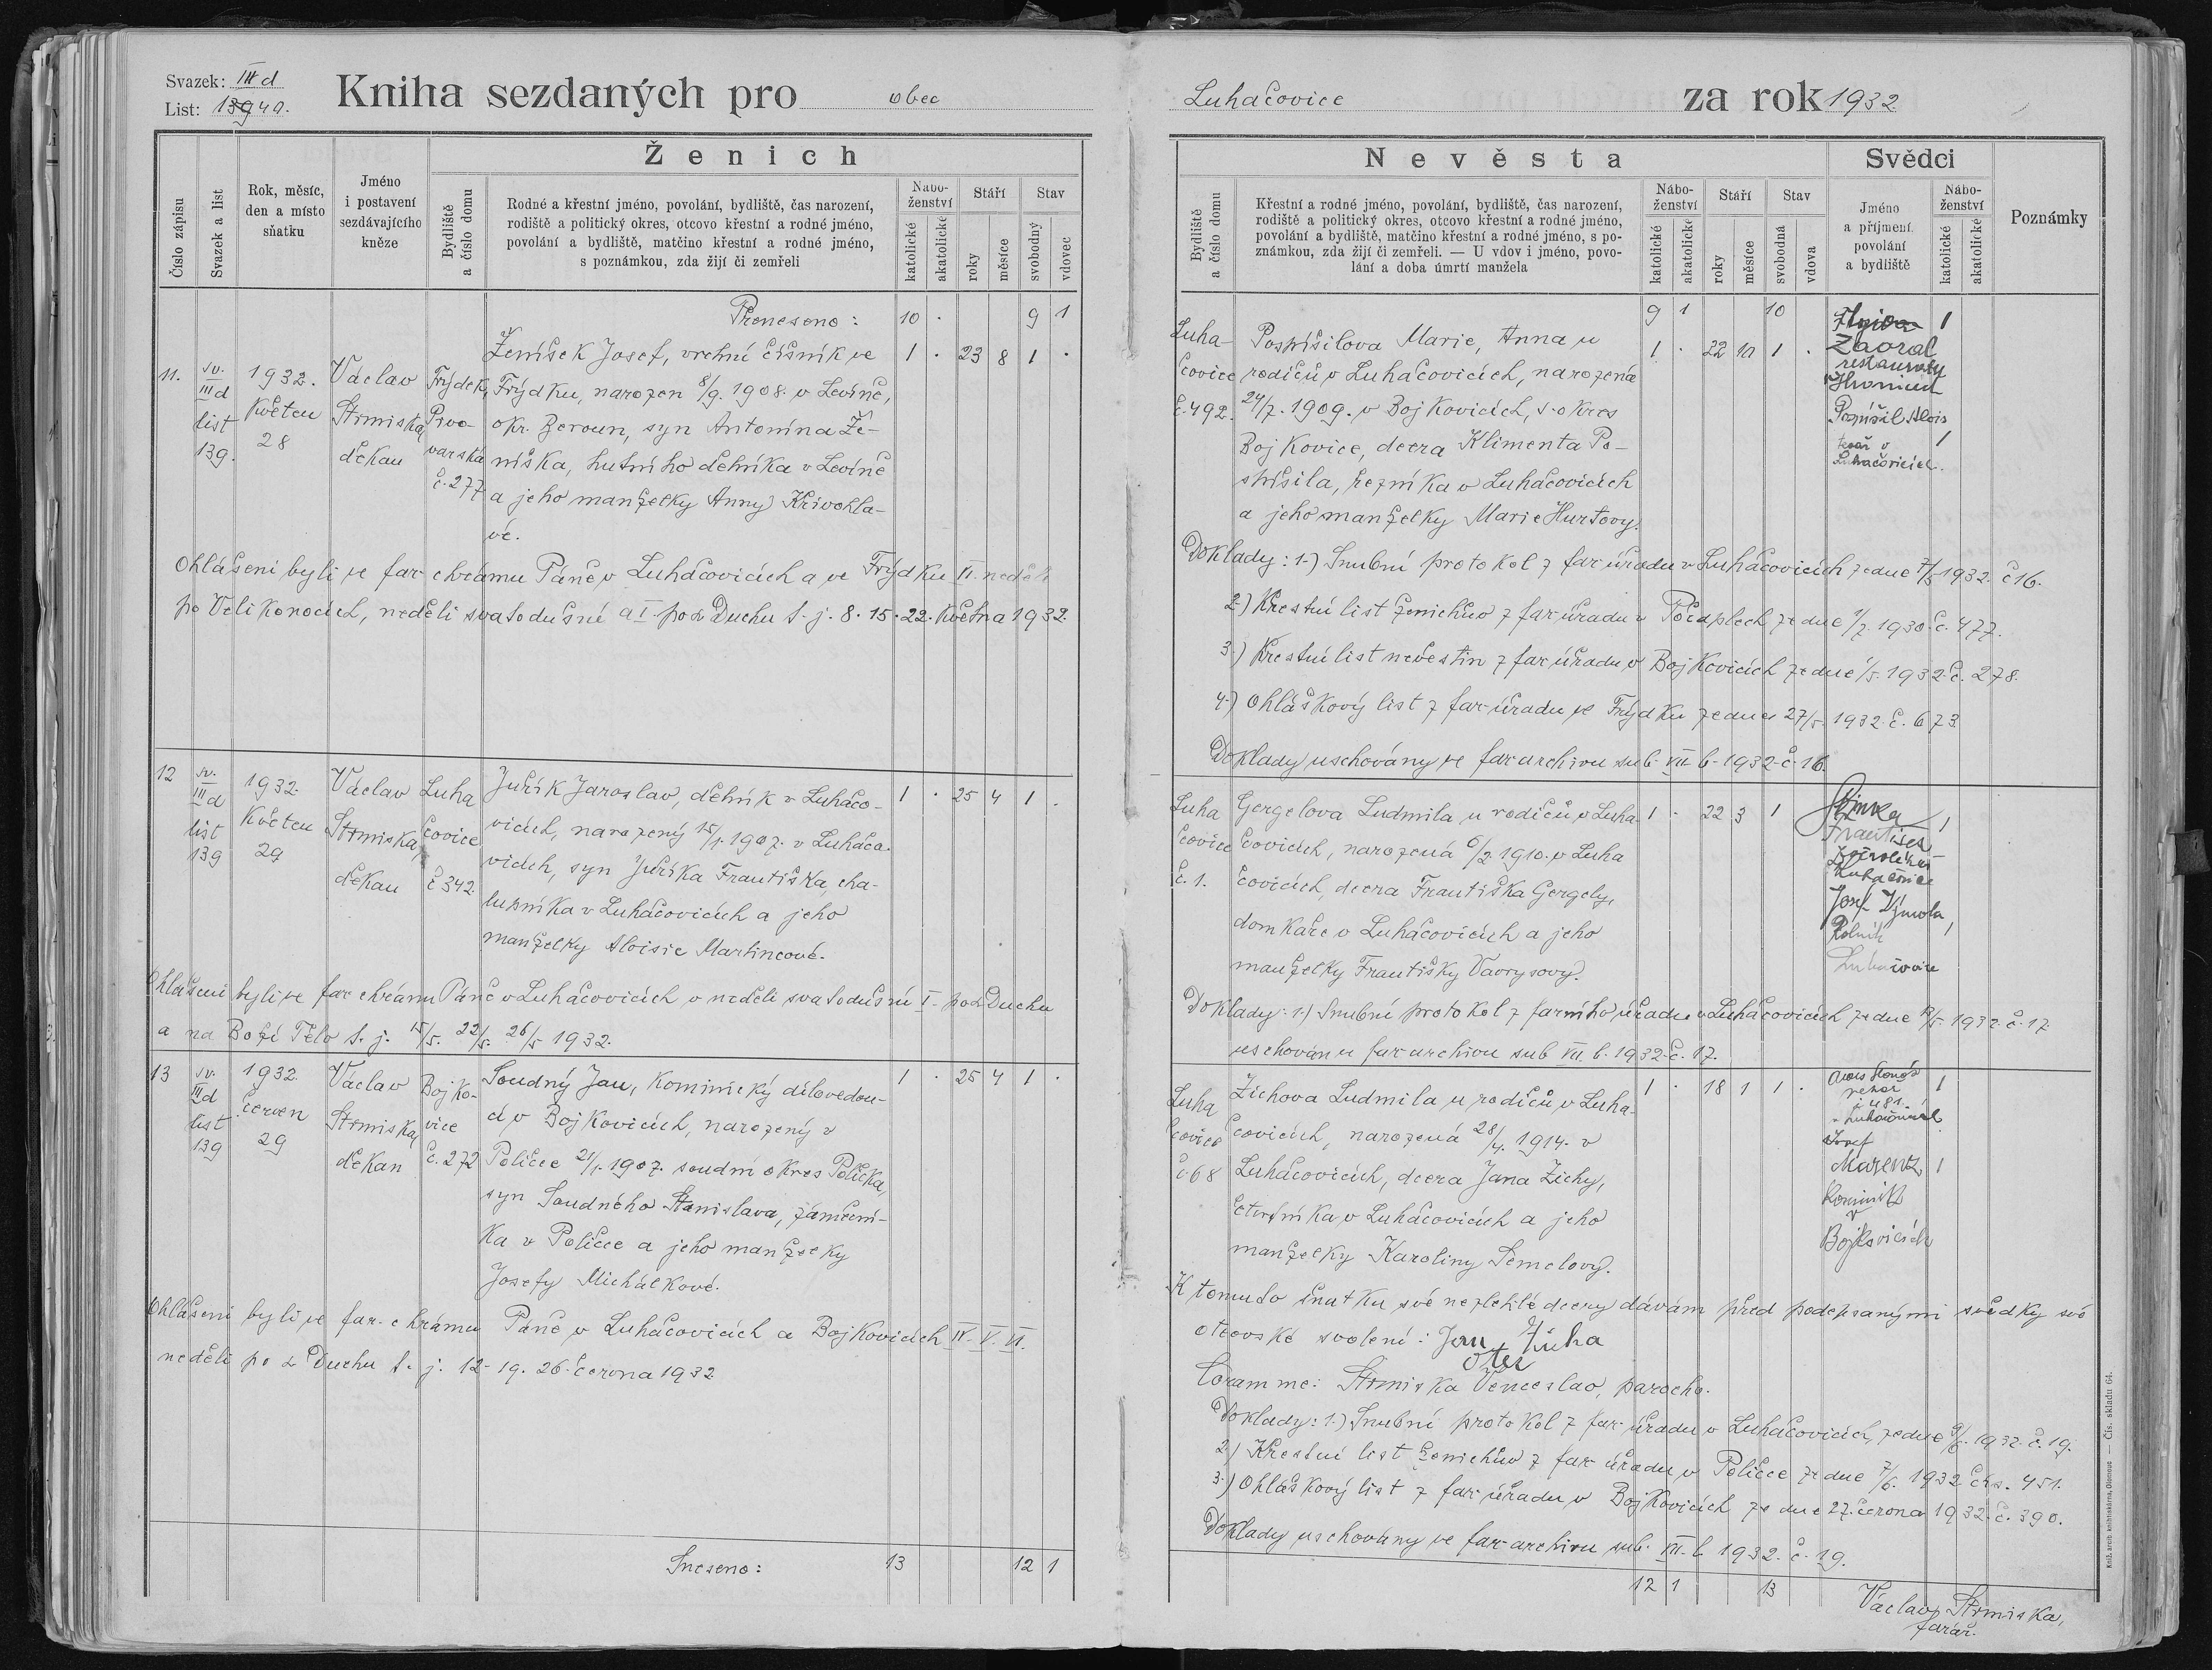 Svazek: III d
List: 13940.
Kniha sezdaných pro obec
Číslo zápisu
Svazek a list
Rok, měsíc,
den a místo
sňatku
Jméno
i postavení
sezdávajícího
kněze
Ženich
Bydliště
a číslo domu
Rodné a křestní jméno, povolání, bydliště, čas narození,
rodiště a politický okres, otcovo křestní a rodné jméno,
povolání a bydliště, matčino křestní a rodné jméno,
s poznámkou, zda žijí či zemřeli
Nábo-
ženství
katolické
akatolické
Stáří
roky
měsíce
Stav
svobodný
vdovec
Přeneseno: 10 . 9 1
11.
sv.
III d
list
139.
1932.
Květen
28
Václav
Strmiska,
děkan
Frýdek,
Pivo-
varská
č. 277
Ženíšek Josef, vrchní číšník ve
Frýdku, narozen 8/9. 1908. v Levíně,
okr. Beroun, syn Antonína Že-
níška, hutního dělníka v Levíně
a jeho manželky Anny Křivohla-
vé.
1 . 23 8 1 .
Ohlášeni byli ve far. chrámu Páně v Luháčovicích a ve Frýdku VI. neděli
po Velikonocích, neděli svatodušní a I. po sv Duchu t. j. 8. 15. 22. Května 1932.
12
sv.
III d
list
139
1932.
Květen
29
Václav
Strmiska,
děkan
Luha
čovice
č 342.
Juřík Jaroslav, dělník v Luháčo-
vicích, narozený 15/1. 1907. v Luháčo-
vicích, syn Juříka Františka, cha-
lupníka v Luháčovicích a jeho
manželky Aloisie Martincové.
1 . 25 4 1 .
Ohlášeni byli ve far. chrámu Páně v Luháčovicích v neděli svatodušní I. po sv Duchu
a na Boží Tělo t. j. 15/5. 22/5. 26/5 1932.
13
sv.
III d
list
139
1932.
červen
29
Václav
Strmiska,
děkan
Bojko-
vice
č. 272
Soudný Jan, kominický dílovedou-
cí v Bojkovicích, narozený v
Poličce 21/1. 1907. soudní okres Polička,
syn Soudného Stanislava, zámeční-
ka v Poličce a jeho manželky
Josefy Michálkové.
1 . 25 4 1 .
Ohlášeni byli ve far. chrámu Páně v Luháčovicích a Bojkovicích IV. V. VI.
neděli po sv Duchu t. j. 12. 19. 26. června 1932.
Sneseno: 13 12 1
Luhačovice za rok 1932
Nevěsta
Bydliště
a číslo domu
Křestní a rodné jméno, povolání, bydliště, čas narození,
rodiště a politický okres, otcovo křestní a rodné jméno,
povolání a bydliště, matčino křestní a rodné jméno, s po-
známkou, zda žijí či zemřeli. — U vdov i jméno, povo-
lání a doba úmrtí manžela
Nábo-
ženství
katolické
akatolické
Stáří
roky
měsíce
Stav
svobodná
vdova
Svědci
Jméno
a příjmení
povolání
a bydliště
Nábo-
ženství
katolické
akatolické
Poznámky
9 1 10
Luha-
čovice
č. 492.
Pospíšilova Marie, Anna u
rodičů v Luháčovicích, narozená
24/7. 1909. v Bojkovicích, s. okres
Bojkovice, dcera Klimenta Po-
spíšila, řezníka v Luháčovicích
a jeho manželky Marie Hurtovy.
1 . 22 10 1 .
Zaoral 1
Pospíšil Alois
tesař v 1
Luhačovicích.
Doklady: 1.) Snubní protokol z far. úřadu v Luháčovicích ze dne 7/5 1932. č 16.
2.) Křestní list ženichův z far. úřadu v Počaplech ze dne 1/7. 1930. č. 477.
3.) Křestní list nevěstin z far. úřadu v Bojkovicích ze dne 1/5. 1932. č. 278.
4.) Ohláškový list z far. úřadu ve Frýdku ze dne 27/5. 1932. č. 673.
Doklady uschovány ve far. archivu sub. VII. b. 1932. č. 16.
Luha
čovice
č. 1.
Gergelova Ludmila u rodičů v Luha
čovicích, narozená 6/2. 1910. v Luha
čovicích, dcera Františka Gergely,
domkaře v Luháčovicích a jeho
manželky Františky Vavrysovy.
1 . 22 3 1
František 1
Luhačovice
Josef
Rolník 1
Luhačovice
Doklady: 1.) Snubní protokol z farního úřadu v Luháčovicích ze dne 12/5. 1932. č. 17.
uschován u far. archivu sub VII. b. 1932. č. 17.
Luha
čovice
č 68
Zichova Ludmila u rodičů v Luha-
čovicích, narozená 28/4. 1914. v
Luháčovicích, dcera Jana Zichy,
čtvrtníka v Luháčovicích a jeho
manželky Karoliny Semelovy.
1 . 18 1 1 .
pekař 1
č 481.
v Luhačovicích
Josef
Marentz 1
Kominík
v
Bojkovicích
K tomuto sňatku své nezletilé dcery dávám před podepsanými svědky své
otcovské svolení: Jan Zicha
otec
Coram me: Strmiska Venceslav, parochs.
Doklady: 1.) Snubní protokol z far. úřadu v Luháčovicích, ze dne 9/6. 1932. č. 19.
2.) Křestní list ženichův z far. úřadu v Poličce ze dne 7/6. 1932 čís. 451.
3.) Ohláškový list z far. úřadu v Bojkovicích ze dne 27. června 1932. č. 390.
Doklady uschovány ve far. archivu sub. VII. b. 1932. č. 19.
12 1 13
Václav Strmiska,
farář.
Kněž. arcib. knihtiskárna, Olomouc — Čís. skladu 64.